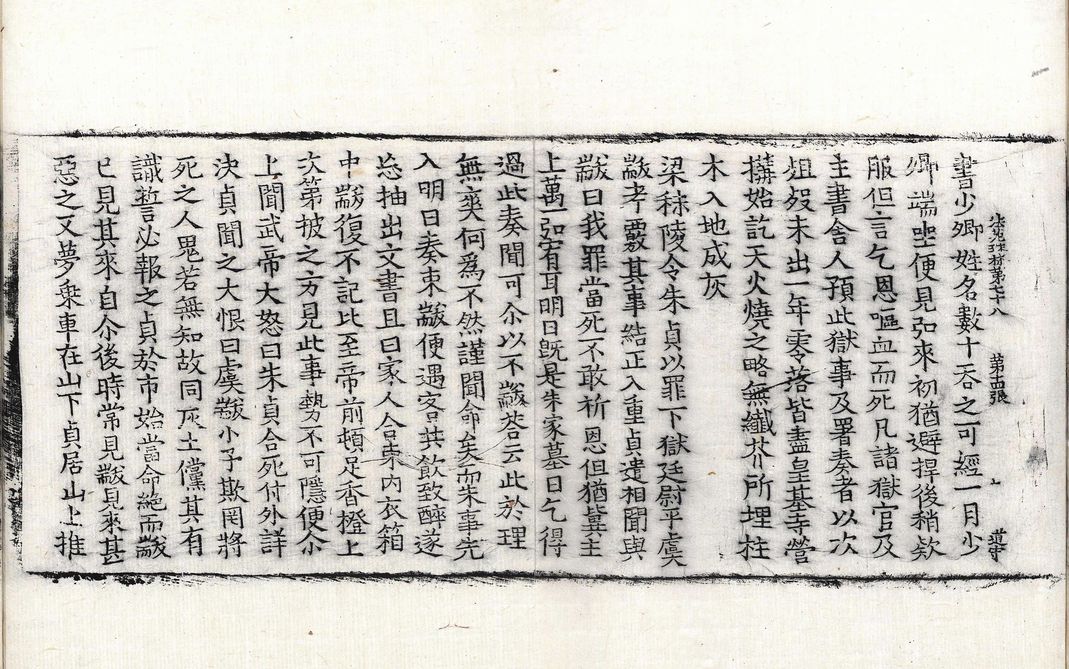 書少卿姓名數十吞之可經一月少
法苑珠林第七十八
卿端坐便見弘來初猶避捍後稍欵
服但言乞恩嘔血而死凡諸獄官及
主書舍人預此獄事及署奏者以次
殂歿未出一年零落皆盡皇基寺營
搆始訖天火燒之略無纖芥所埋柱
木入地成灰
梁秣陵令朱貞以罪下獄廷尉平虞
黻考覈其事結正入重貞遣相聞與
黻曰我罪當死不敢祈恩但猶冀主
上萬一弘宥耳明日旣是朱家墓日乞得
過此奏聞可尒以不黻荅云此於理
無爽何爲不然謹聞命矣而朱事先
入明日奏束黻便遇客共飮致醉遂
忘抽出文書且曰家人合束內衣箱
中黻復不記比至帝前頓足香橙上
次第披之方見此事勢不可隱便尒
上聞武帝大怒曰朱貞合死付外詳
決貞聞之大恨曰虞黻小子欺罔將
死之人鬼若無知故同灰土儻其有
識誓必報之貞於市始當命絕而黻
已見其來自尒後時常見黻見來甚
惡之又夢乘車在山下貞居山上推